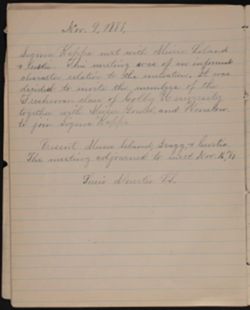 Nov. 9, 1886,
Sigma Kappa met with Misses Leland
The meeting was of an informal
character relative to the initiation. It was
decided to invite the members of the
Freshman class of Colby University
together with Misses Gould and Winslow
to join Sigma Kappa.
Present Misses Leland, Bragg, & Curtis
The meeting adjourned to meet Nov.